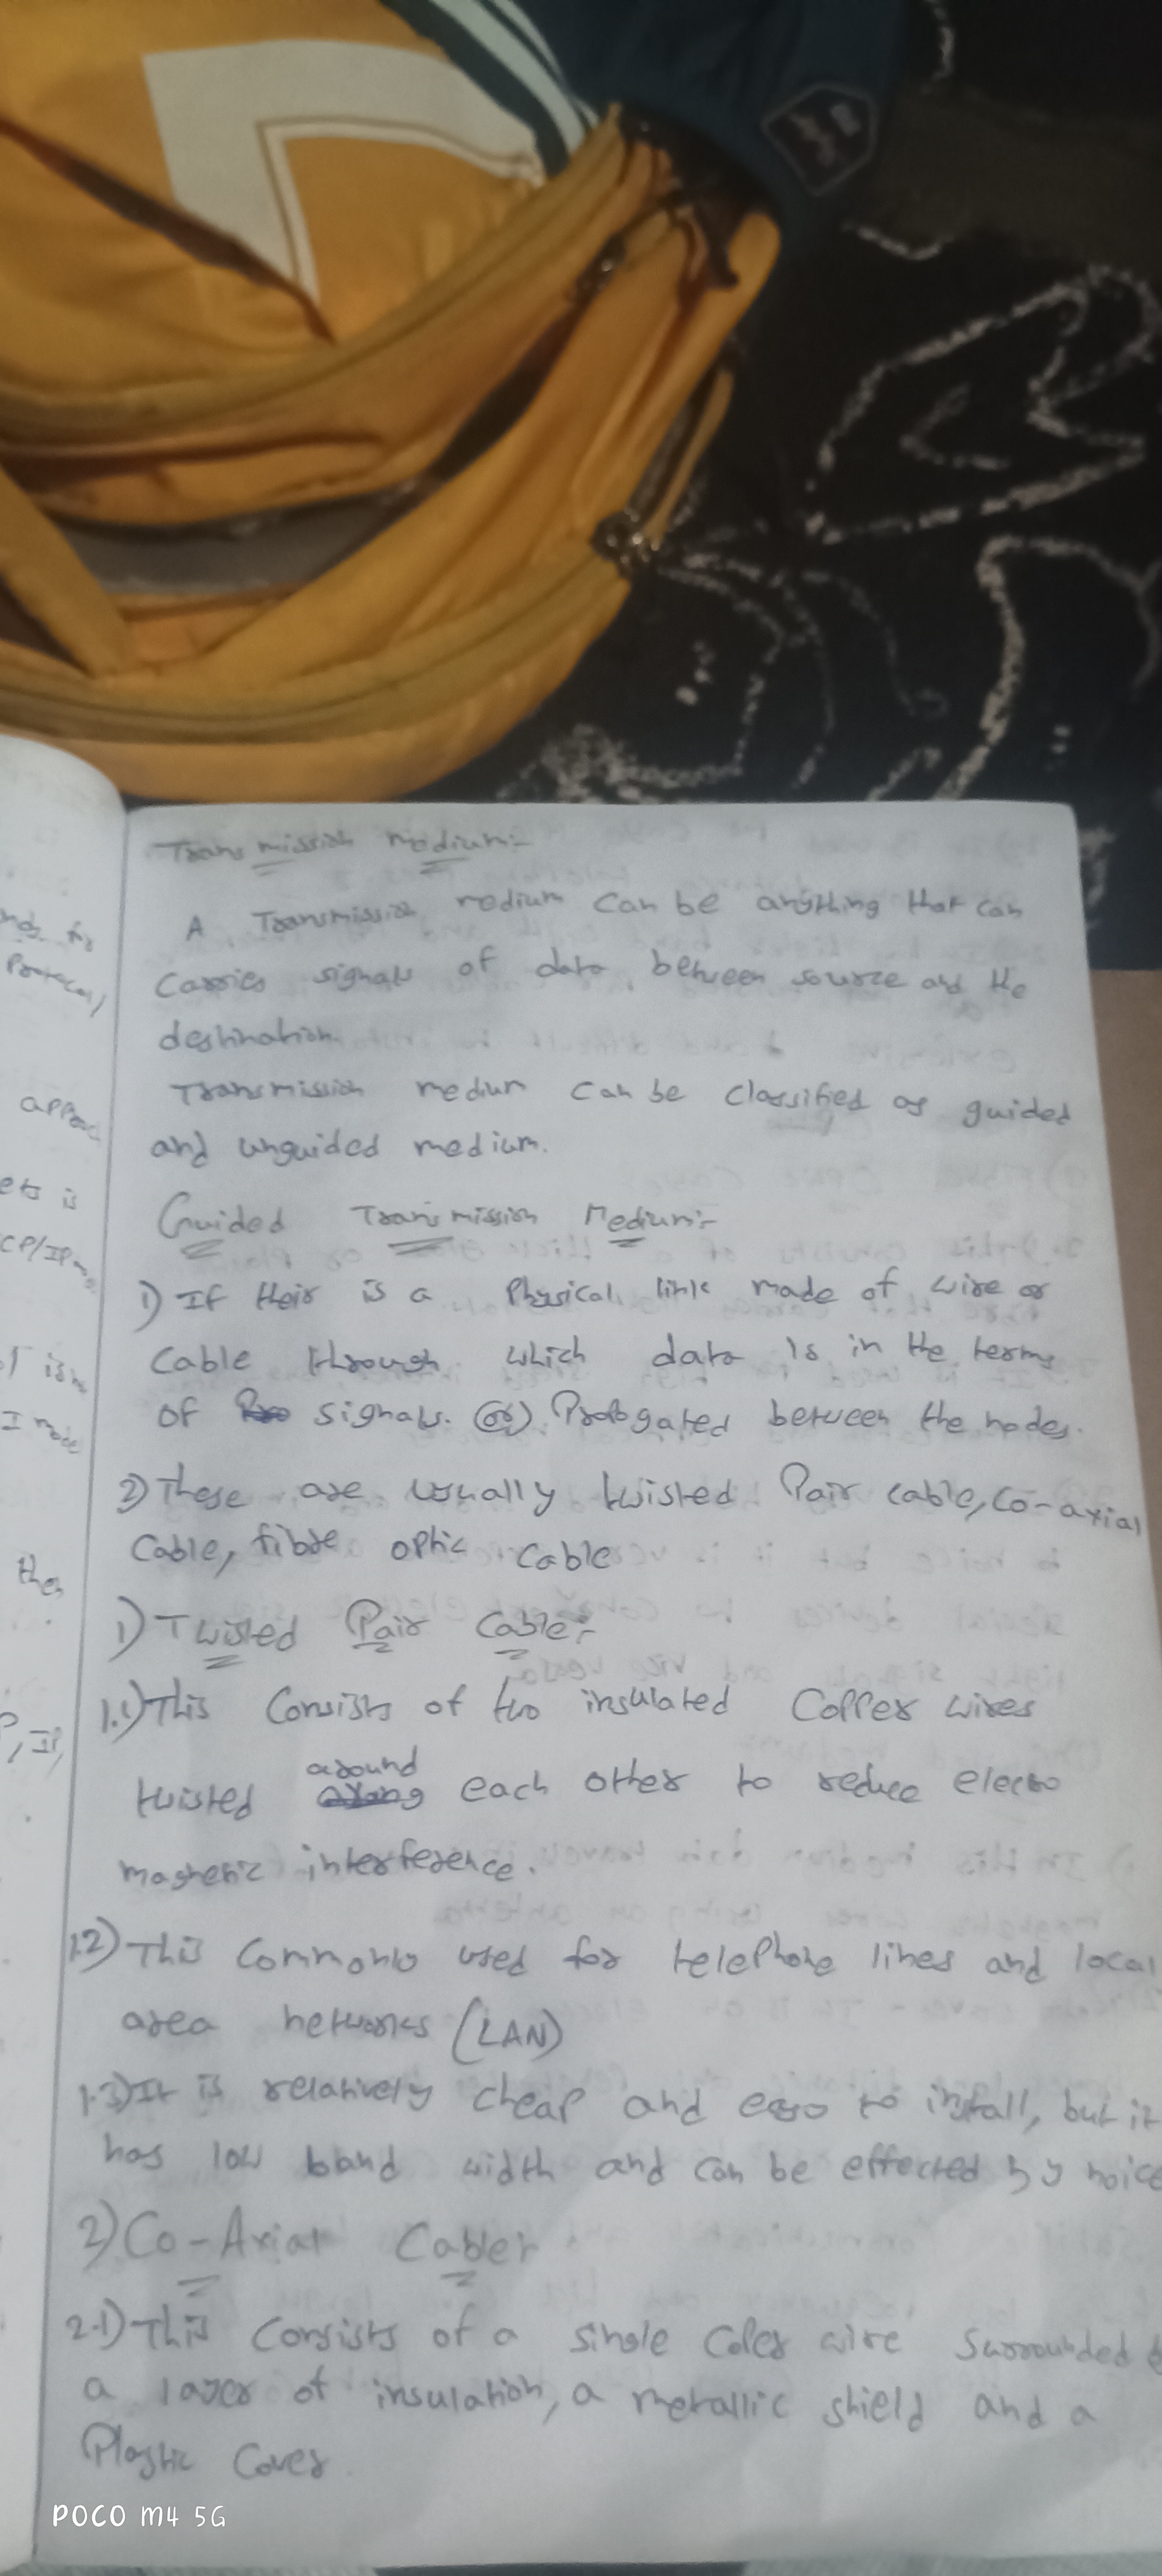 Transmission medium:-
A Transmission medium can be anything that can
carries signals of data between source and the
destination.
Transmission medium can be classified as guided
and unguided medium.
Guided Transmission Medium:-
1) If their is a Physical link made of wire or
cable through which data is in the terms
of signals. (or) Propogated between the nodes.
2) These are usually twisted Pair cable, co-axial
cable, fibre optic cable
1) Twisted Pair Cable:-
1.1) This Consists of two insulated Copper wires
twisted around each other to reduce electro
magnetic interference.
1.2) This Commonly used for telephone lines and local
area networks (LAN)
1.3) It is relatively cheap and easy to install, but it
has low band width and can be effected by noice
2) Co-Axial Cable:-
2.1) This Consists of a single Coper wire Surrounded
a layer of insulation, a metallic shield and a
Plastic Cover.
nds for
Protocol)
ets is
CP/IP
then
P, IP,
POCO M4 5G